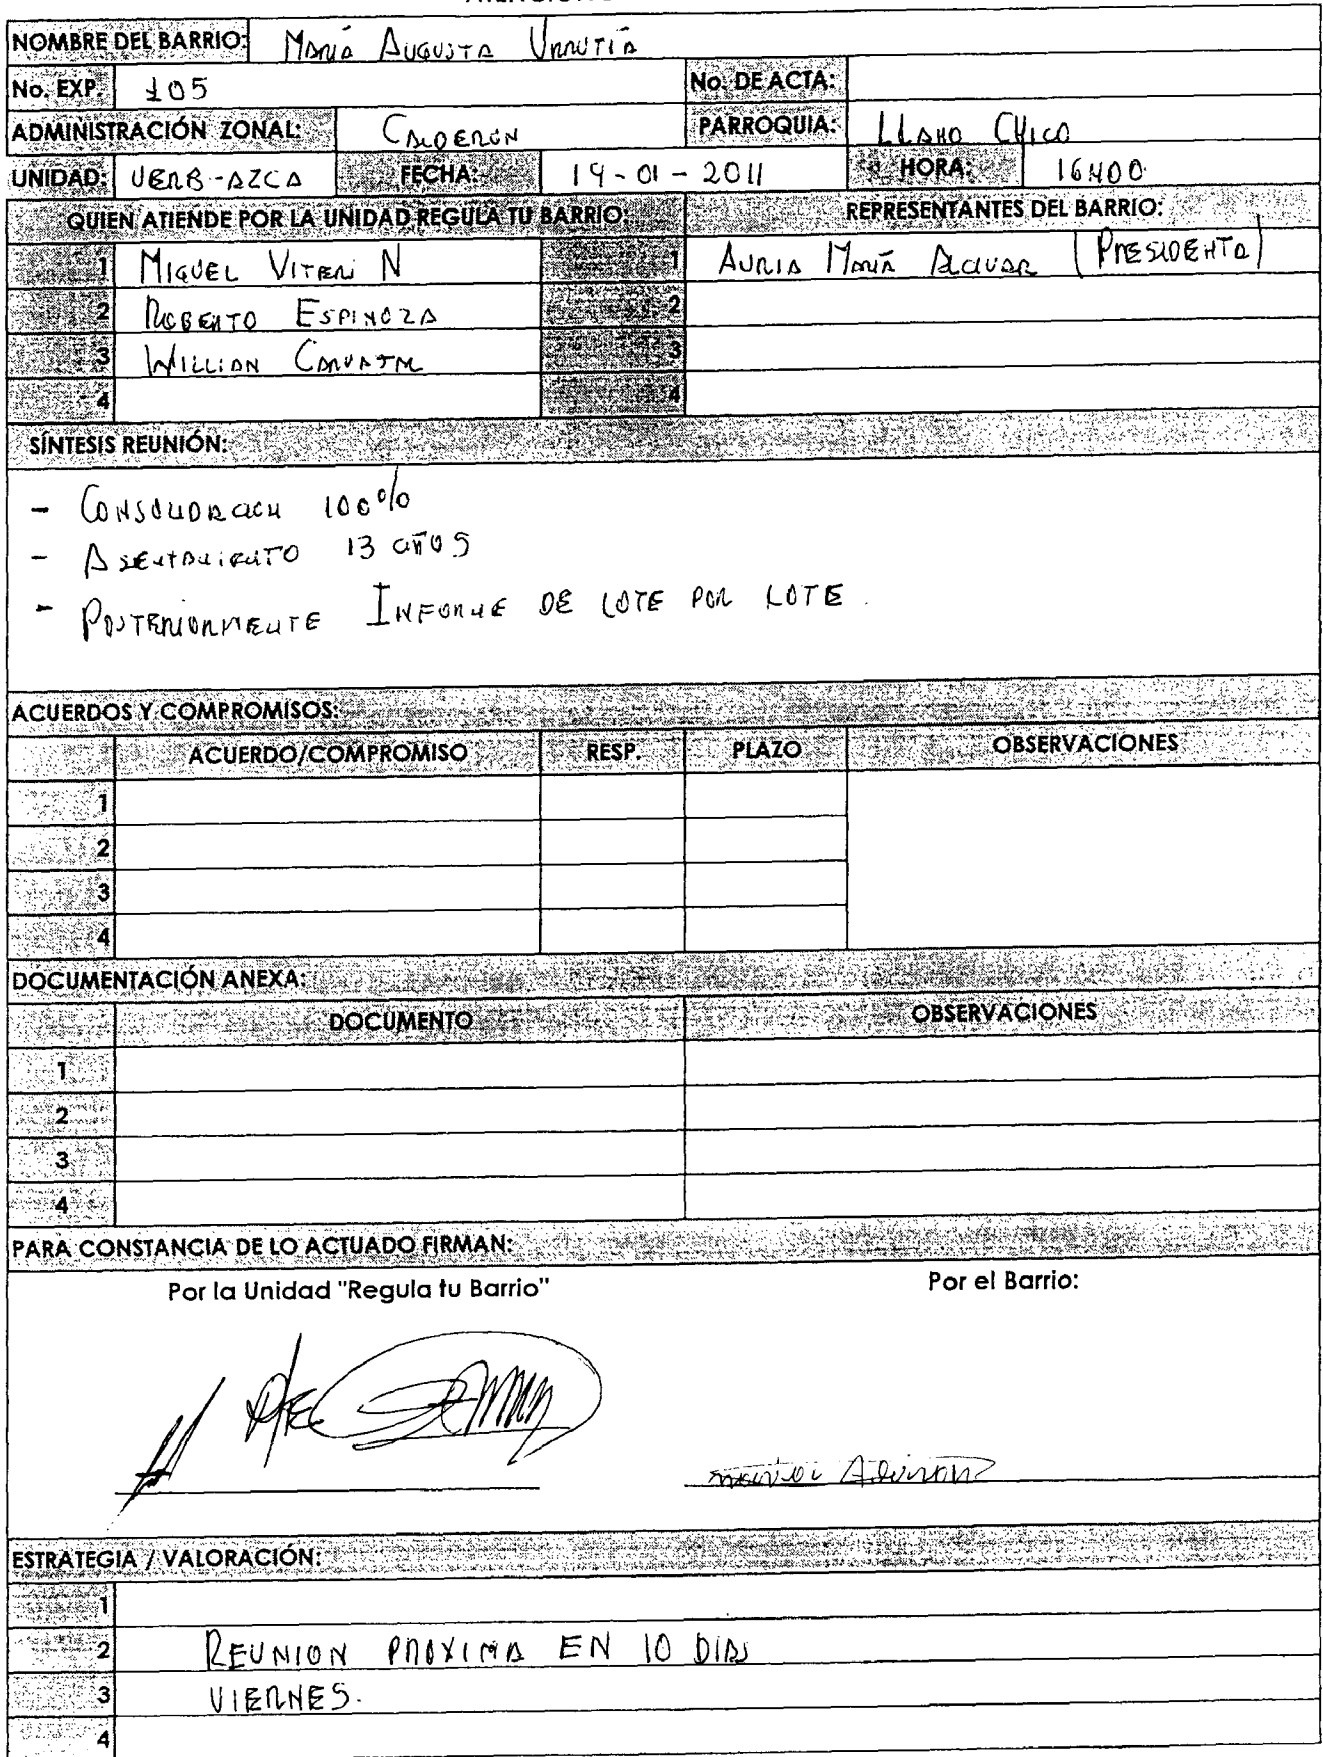 NOMBRE DEL BARRIO: María Augusta Urrutía
No. EXP. 105 No. DE ACTA:
ADMINISTRACIÓN ZONAL: CALDERÓN PARROQUIA: LLANO CHICO
UNIDAD: UERB-AZCA FECHA: 19-01-2011 HORA: 16H00
QUIEN ATIENDE POR LA UNIDAD REGULA TU BARRIO: REPRESENTANTES DEL BARRIO:
1 MIGUEL VITERI N 1 AURIA MARÍA (PRESIDENTA)
2 ROBERTO ESPINOZA 2
3 WILLIAN CARVAJAL 3
4 4
SÍNTESIS REUNIÓN:
- CONSOLIDACION 100%
- ASENTAMIENTO 13 años
- POSTERIORMENTE INFORME DE LOTE POR LOTE.
ACUERDOS Y COMPROMISOS:
ACUERDO/COMPROMISO RESP. PLAZO OBSERVACIONES
1
2
3
4
DOCUMENTACIÓN ANEXA:
DOCUMENTO OBSERVACIONES
1
2
3
4
PARA CONSTANCIA DE LO ACTUADO FIRMAN:
Por la Unidad "Regula tu Barrio" Por el Barrio:
ESTRATEGIA / VALORACIÓN:
1
2 REUNION PROXIMA EN 10 DIAS
3 VIERNES.
4